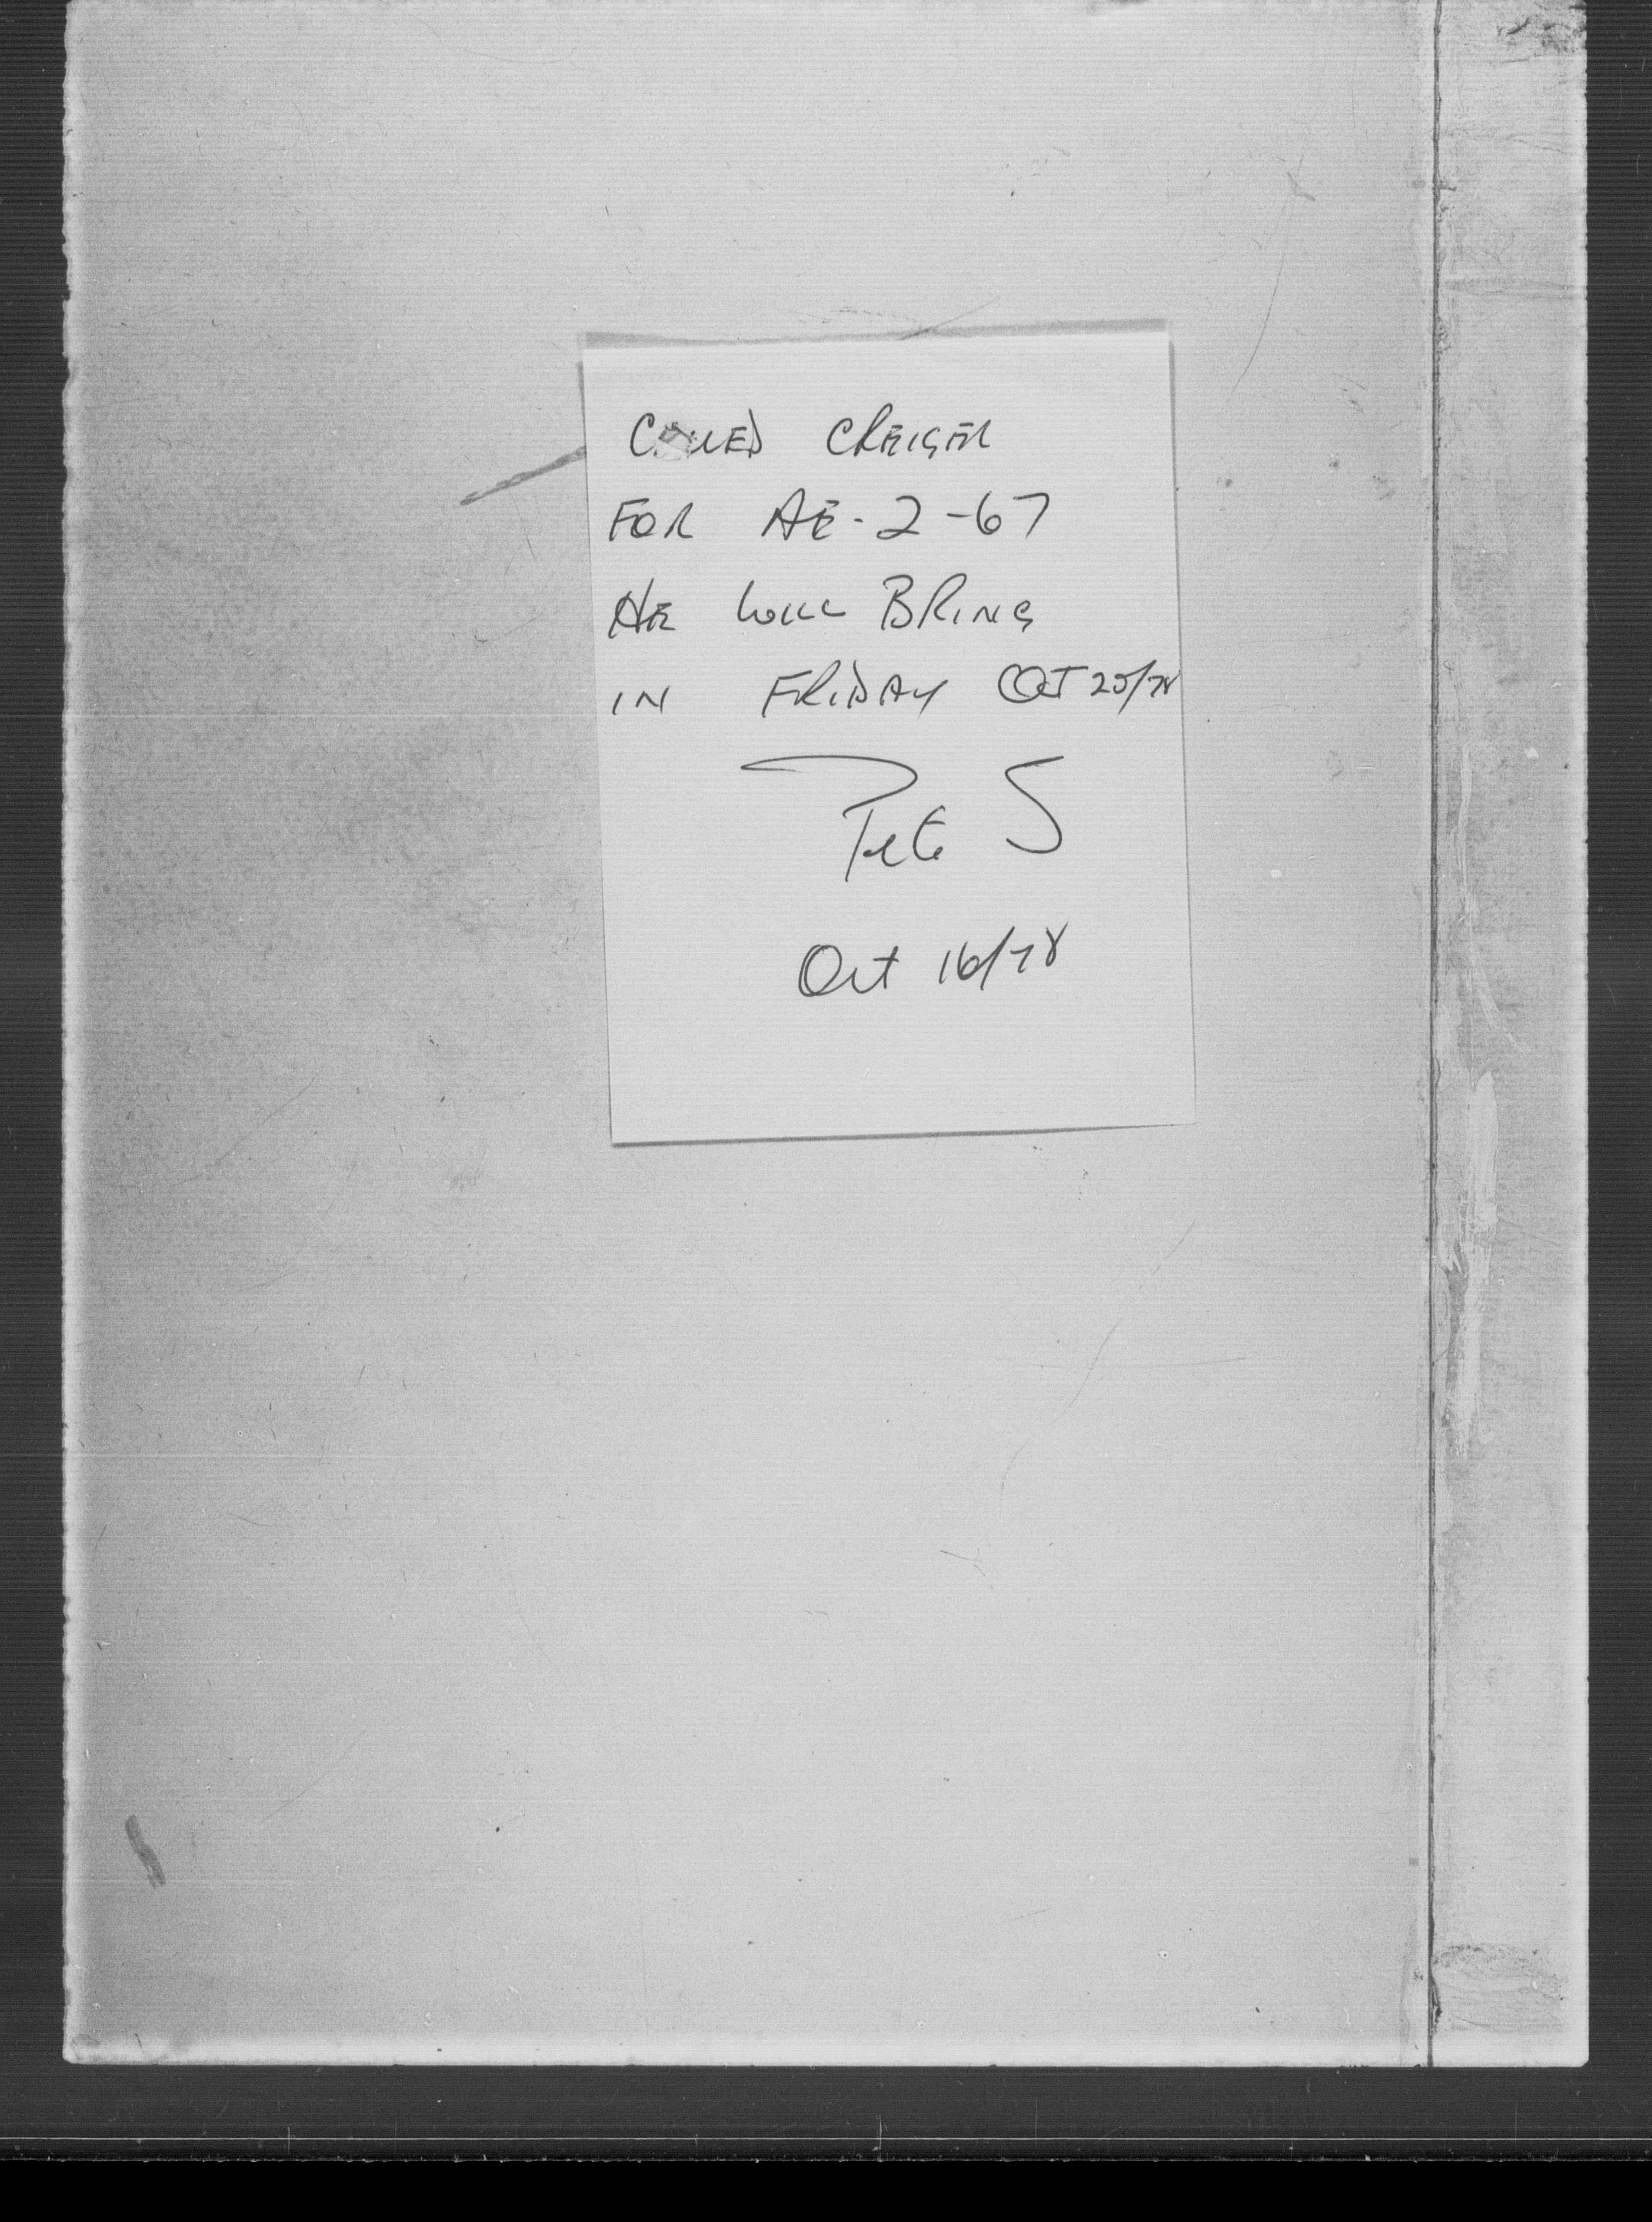 CALLED CREIGER
FOR AE-2-67
HE WILL BRING
IN FRIDAY OCT 20/78
Pete S
Oct 16/78